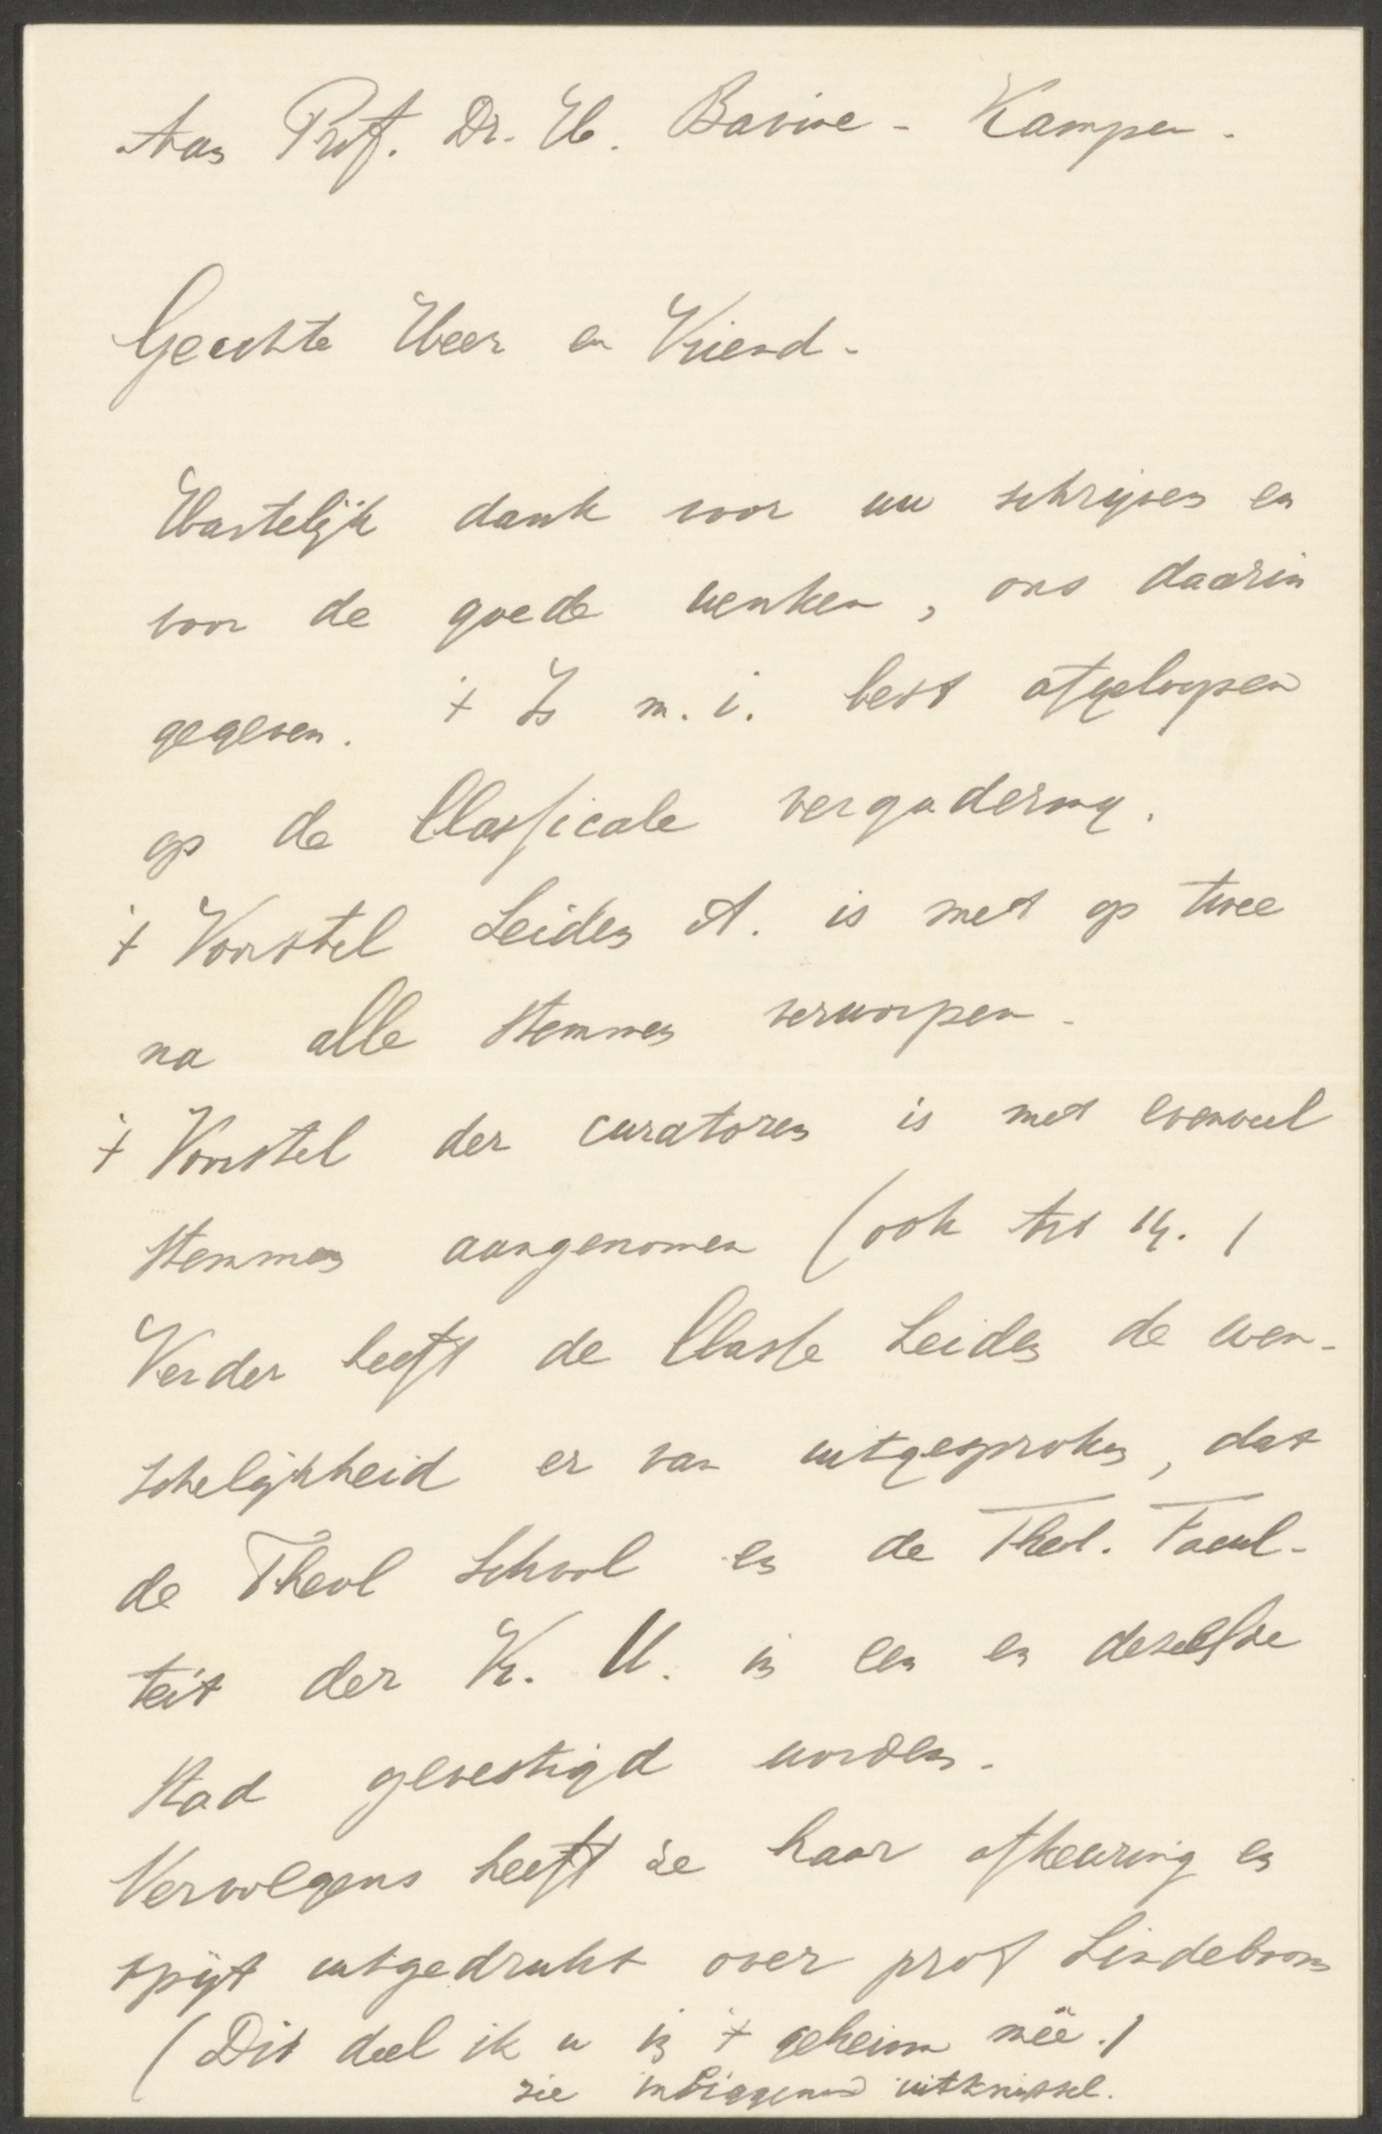 Aan Prof. Dr. H. Bavinc - Kampen.
Geachte Heer en Vriend.
Hartelijk dank voor uw schrijven en
voor de goede wenken, ons daarin
gegeven. 't Is m.i. best afgeloopen
op de Classicale vergadering.
't Voorstel Leiden A. is met op twee
na alle stemmen verworpen.
't Voorstel der curatoren is met evenveel
stemmen aangenomen (ook Art 14.)
Verder heeft de Classe Leiden de wen-
schelijkheid er van uitgesproken, dat
de Theol School en de Theol. Facul-
teit der V. U. in een en dezelfde
stad gevestigd worden.
Vervolgens heeft ze haar afkeuring en
spijt uitgedrukt over prof Lindeboom
(Dit deel ik u in 't geheim meê.)
zie inliggend uitknipsel.